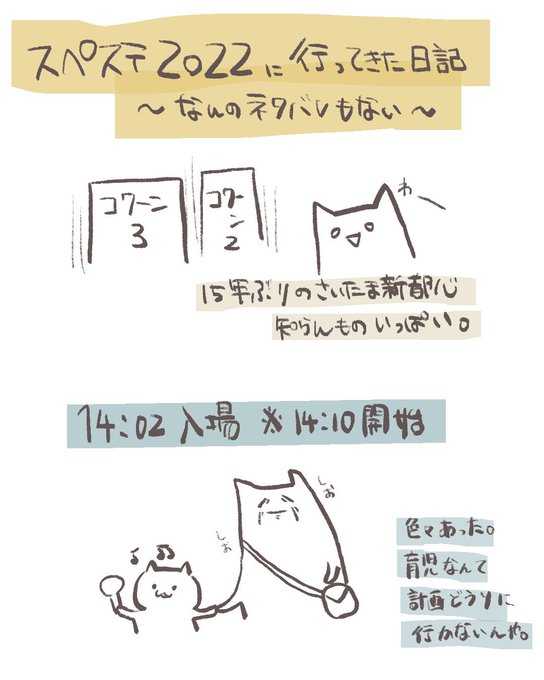 スペステ2022に行ってきた日記
～なんのネタバレもない～
コクーン3
コクーン2
わー
15年ぶりのさいたま新都心
知らんものいっぱい。
14:02入場 ※14:10開始
しお
しお
色々あった。
育児なんて
計画どうりに
行かないんや。